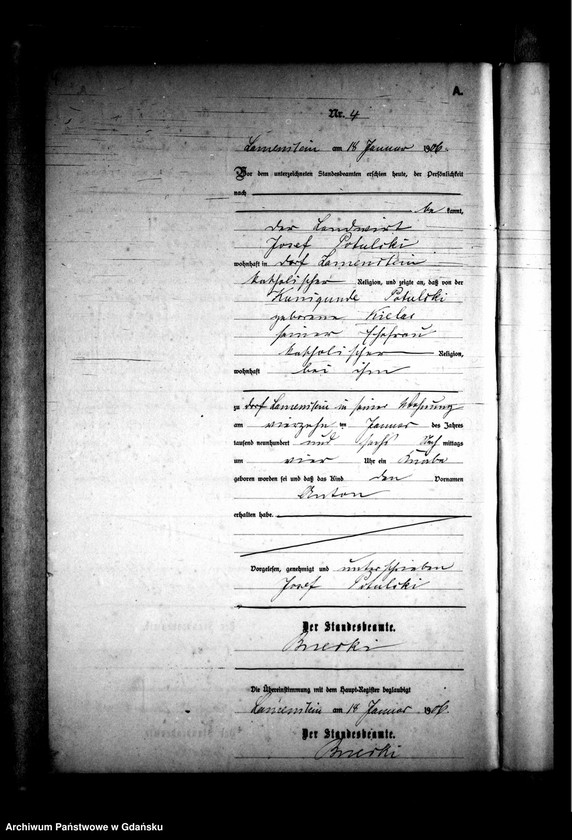 A.
Nr. 4
Lamenstein am 18 Januar 1906.
Vor dem unterzeichneten Standesbeamten erschien heute, der Persönlichkeit
nach
be kannt,
der Landwirt
Josef Potulski
wohnhaft in Dorf Lamenstein
katholischer Religion, und zeigte an, daß von der
Kunigunde Potulski
geborene Kielas
seiner Ehefrau
katholischer Religion,
wohnhaft bei ihm
zu Dorf Lamenstein in seiner Wohnung
am vierzehn ten Januar des Jahres
tausend neunhundert und sechs Nach mittags
um vier Uhr ein Knabe
geboren worden sei und daß das Kind den Vornamen
Anton
erhalten habe.
Vorgelesen, genehmigt und unterschrieben
Josef Potulski
Der Standesbeamte.
Die Übereinstimmung mit dem Haupt-Register beglaubigt
Lamenstein am 18 Januar 1906.
Der Standesbeamte.
Archiwum Państwowe w Gdańsku